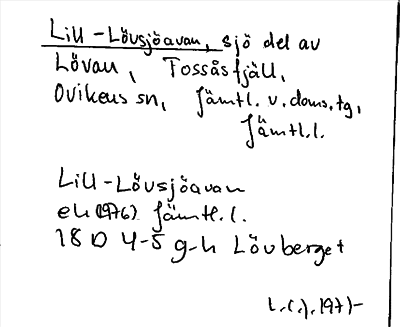 Lill-Lövsjöavan, sjö del av
Lövan, Fossåsfjäll,
Ovikens sn, Jämtl. v. doms. tg,
Jämtl.l.
Lill-Lövsjöavan
ek (1976) Jämtl.l.
18 D 4-5 g-h Lövberget